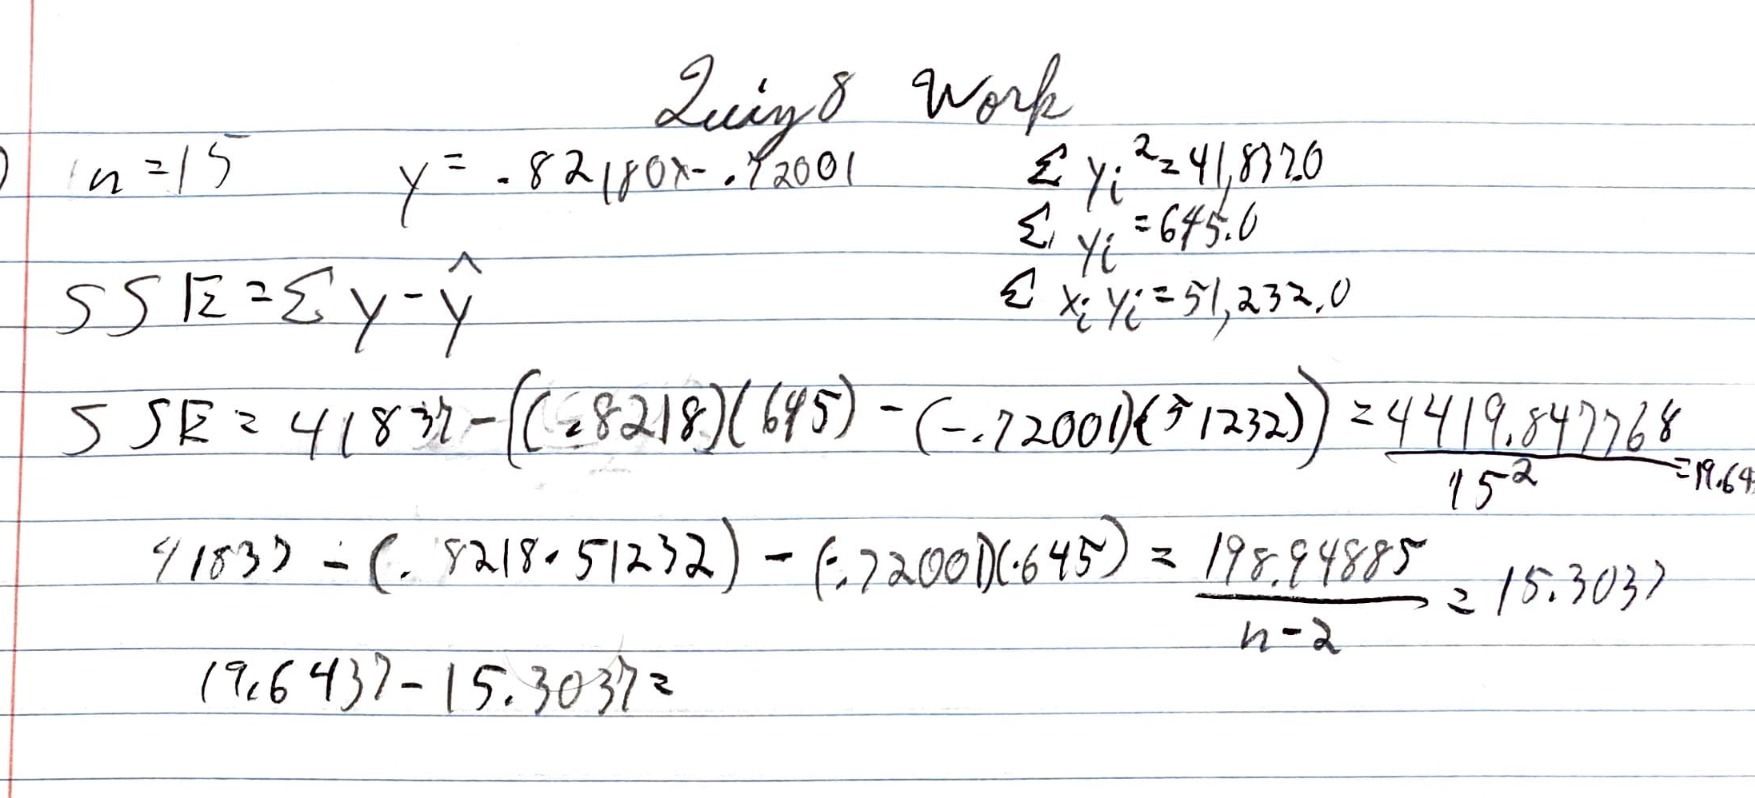 Quiz 8 Work
) n=15 y = .82180x-.72001 Σ yi²=41,837.0
Σ yi =645.0
SSE =Σ y-ŷ Σ xi yi=51,232.0
SSE = 41837-((.8218)(645)-(-.72001)(51232)) =4419.847768/15² =19.64
41837 - (.8218·51232) - (-.72001)(.645) = 198.94885/n-2 = 15.3037
19.6437-15.3037=